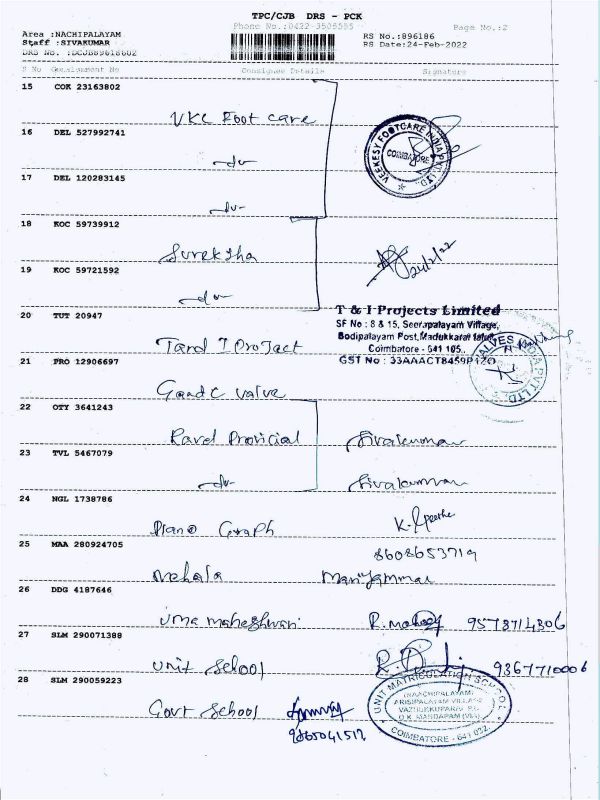 TPC/CJB DRS - PCK
Phone No.:0422-3505555 Page No.:2
Area :NACHIPALAYAM RS No.:896186
Staff :SIVAKUMAR RS Date:24-Feb-2022
DRS No. :DCJB89618602
S No Consignment No Consignee Details Signature
15 COK 23163802
VKC Foot care
16 DEL 527992741
-do-
VEEKESY FOOTCARE INDIA PVT. LTD.
COIMBATORE
17 DEL 120283145
-do-
18 KOC 59739912
Sureksha 24/2/22
19 KOC 59721592
-do-
20 TUT 20947
T & I Projects Limited
SF No : 8 & 15, Seerapalayam Village,
Bodipalayam Post, Madukkarai taluk,
Coimbatore - 641 105.
GST No : 33AAACT8459P1ZO
T and I Project
VALVES INDIA PVT LTD.
21 PRO 12906697
G and C valve
22 OTY 3641243
Ravel Provicial Sivakumar
23 TVL 5467079
-do- Sivakumar
24 NGL 1738786
Piano Graph
25 MAA 280924705 8608653719
Mehala Mariyammal
26 DDG 4187646
uma maheshwari 9578714306
27 SLM 290071388
Unit School 9367710006
28 SLM 290059223
Govt School
UNIT MATRICULATION SCHOOL
(NAACHIPALAYAM)
ARISIPALAYAM VILLAGE
VAZHUKKUPARAI P.O
O.K. MANDAPAM (VIA)
COIMBATORE - 641 032.